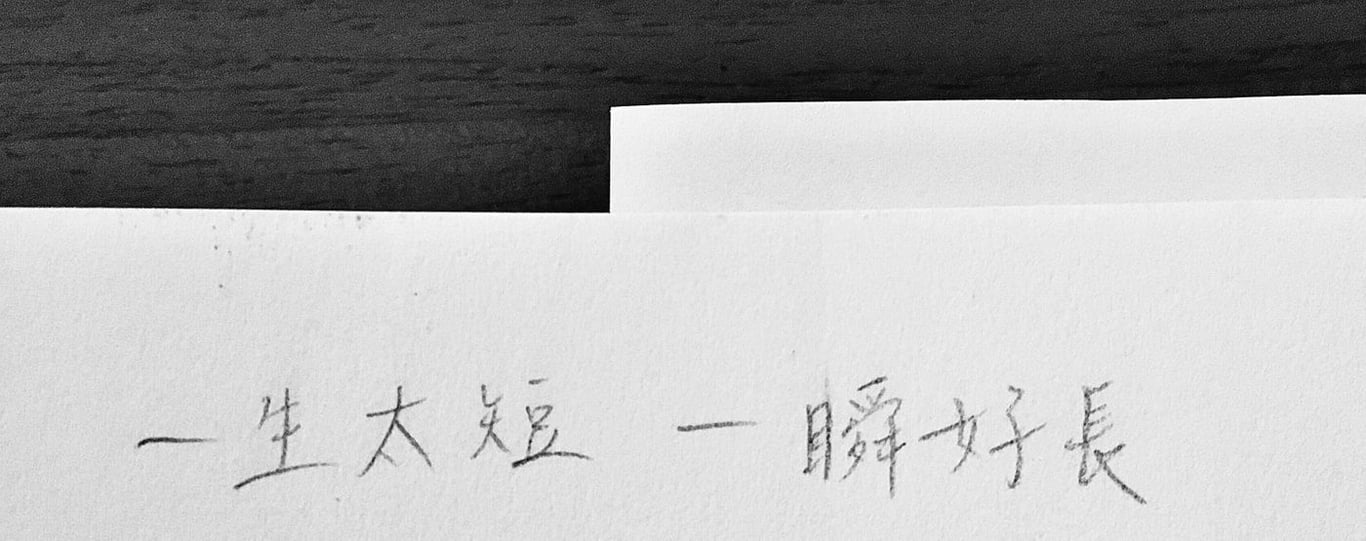 一生太短 一瞬好長